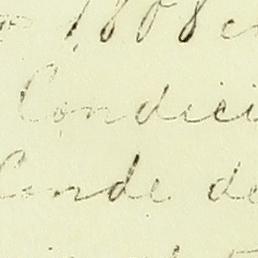 1808
Condici
Conde de